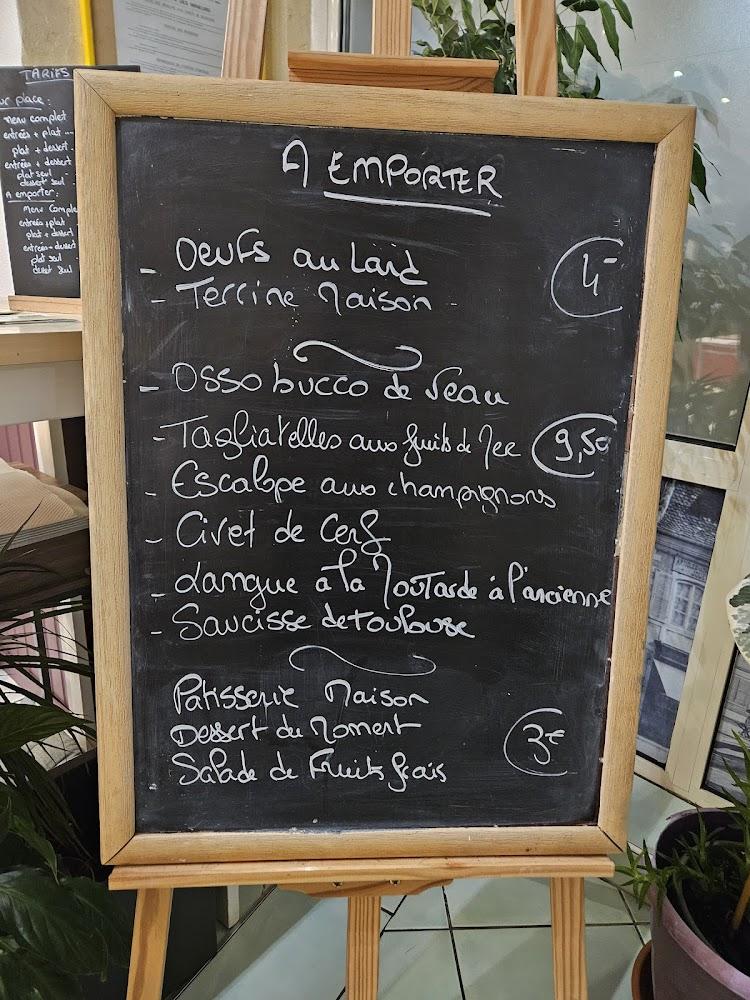 A EMPORTER
- Oeufs au Lard
- Terrine Maison -
4-
- Osso bucco de Veau
- Tagliatelles aux fruits de Mer
9,50
- Escalope aux champignons
- Civet de Cerf
- Langue à la Moutarde à l'ancienne
- Saucisse de toulouse
Patisserie Maison
Dessert du Moment
3€
Salade de Fruits frais
TARIFS
ur place :
menu complet
entrées + plat
plat + dessert
entrées + dessert
plat seul
dessert seul
A emporter :
Menu Comple
entrées + plat
plat + dessert
entrées + dessert
plat seul
dessert seul